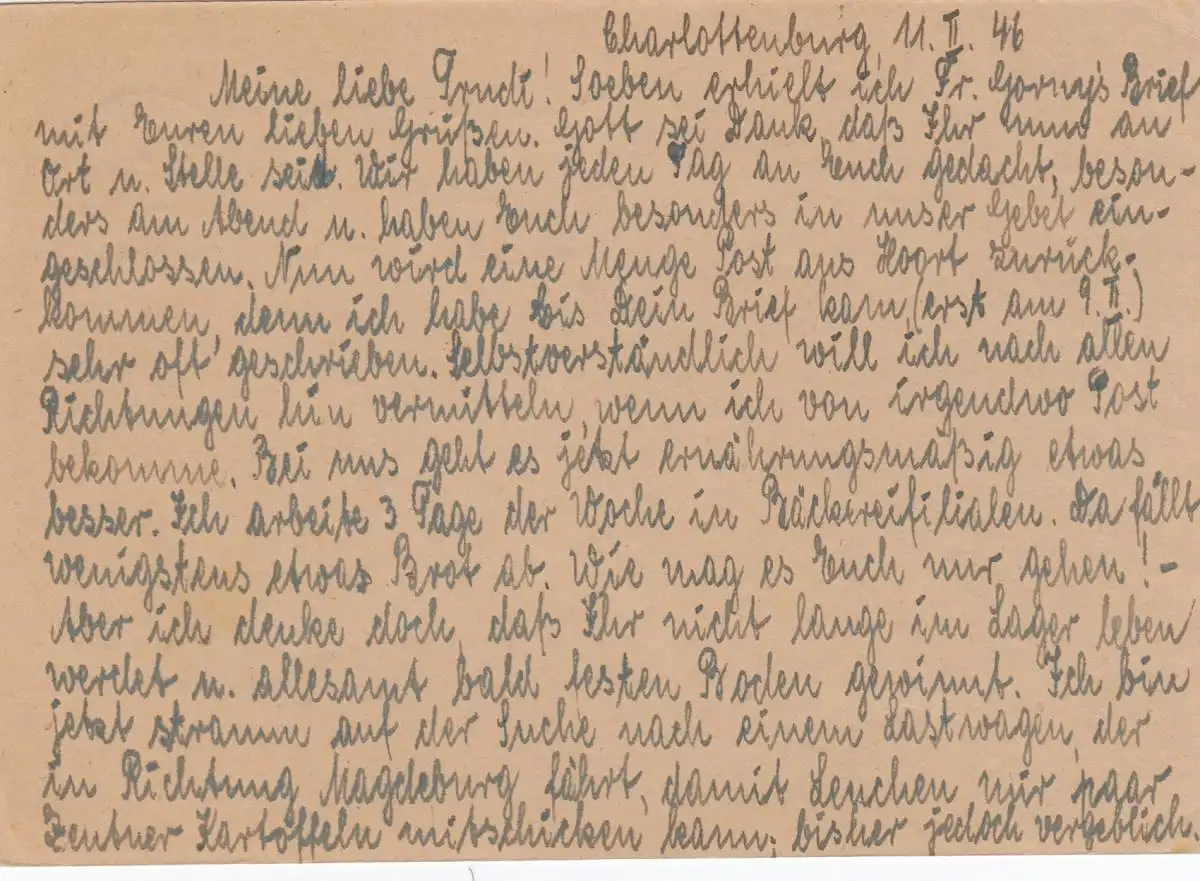 Charlottenburg, 11. II. 46
Meine liebe Trudi! Soeben erhielt ich Fr. Gorny's Brief
mit Euren lieben Grüßen. Gott sei Dank, daß Ihr nun an
Ort u. Stelle seid. Wir haben jeden Tag an Euch gedacht, beson-
ders am Abend u. haben Euch besonders in unser Gebet ein-
geschlossen. Nun wird eine Menge Post aus Hoort zurück-
kommen, denn ich habe bis Dein Brief kam, (erst am 9. II.)
sehr oft geschrieben. Selbstverständlich will ich nach allen
Richtungen hin vermitteln, wenn ich von irgendwo Post
bekomme. Bei uns geht es jetzt ernährungsmäßig etwas
besser. Ich arbeite 3 Tage der Woche in Bäckereifilialen. Da fällt
wenigstens etwas Brot ab. Wie mag es Euch nur gehen! -
Aber ich denke doch, daß Ihr nicht lange im Lager leben
werdet u. allesamt bald festen Boden gewinnt. Ich bin
jetzt stramm auf der Suche nach einem Lastwagen, der
in Richtung Magdeburg fährt, damit Lenchen mir paar
Zentner Kartoffeln mitschicken kann; bisher jedoch vergeblich.